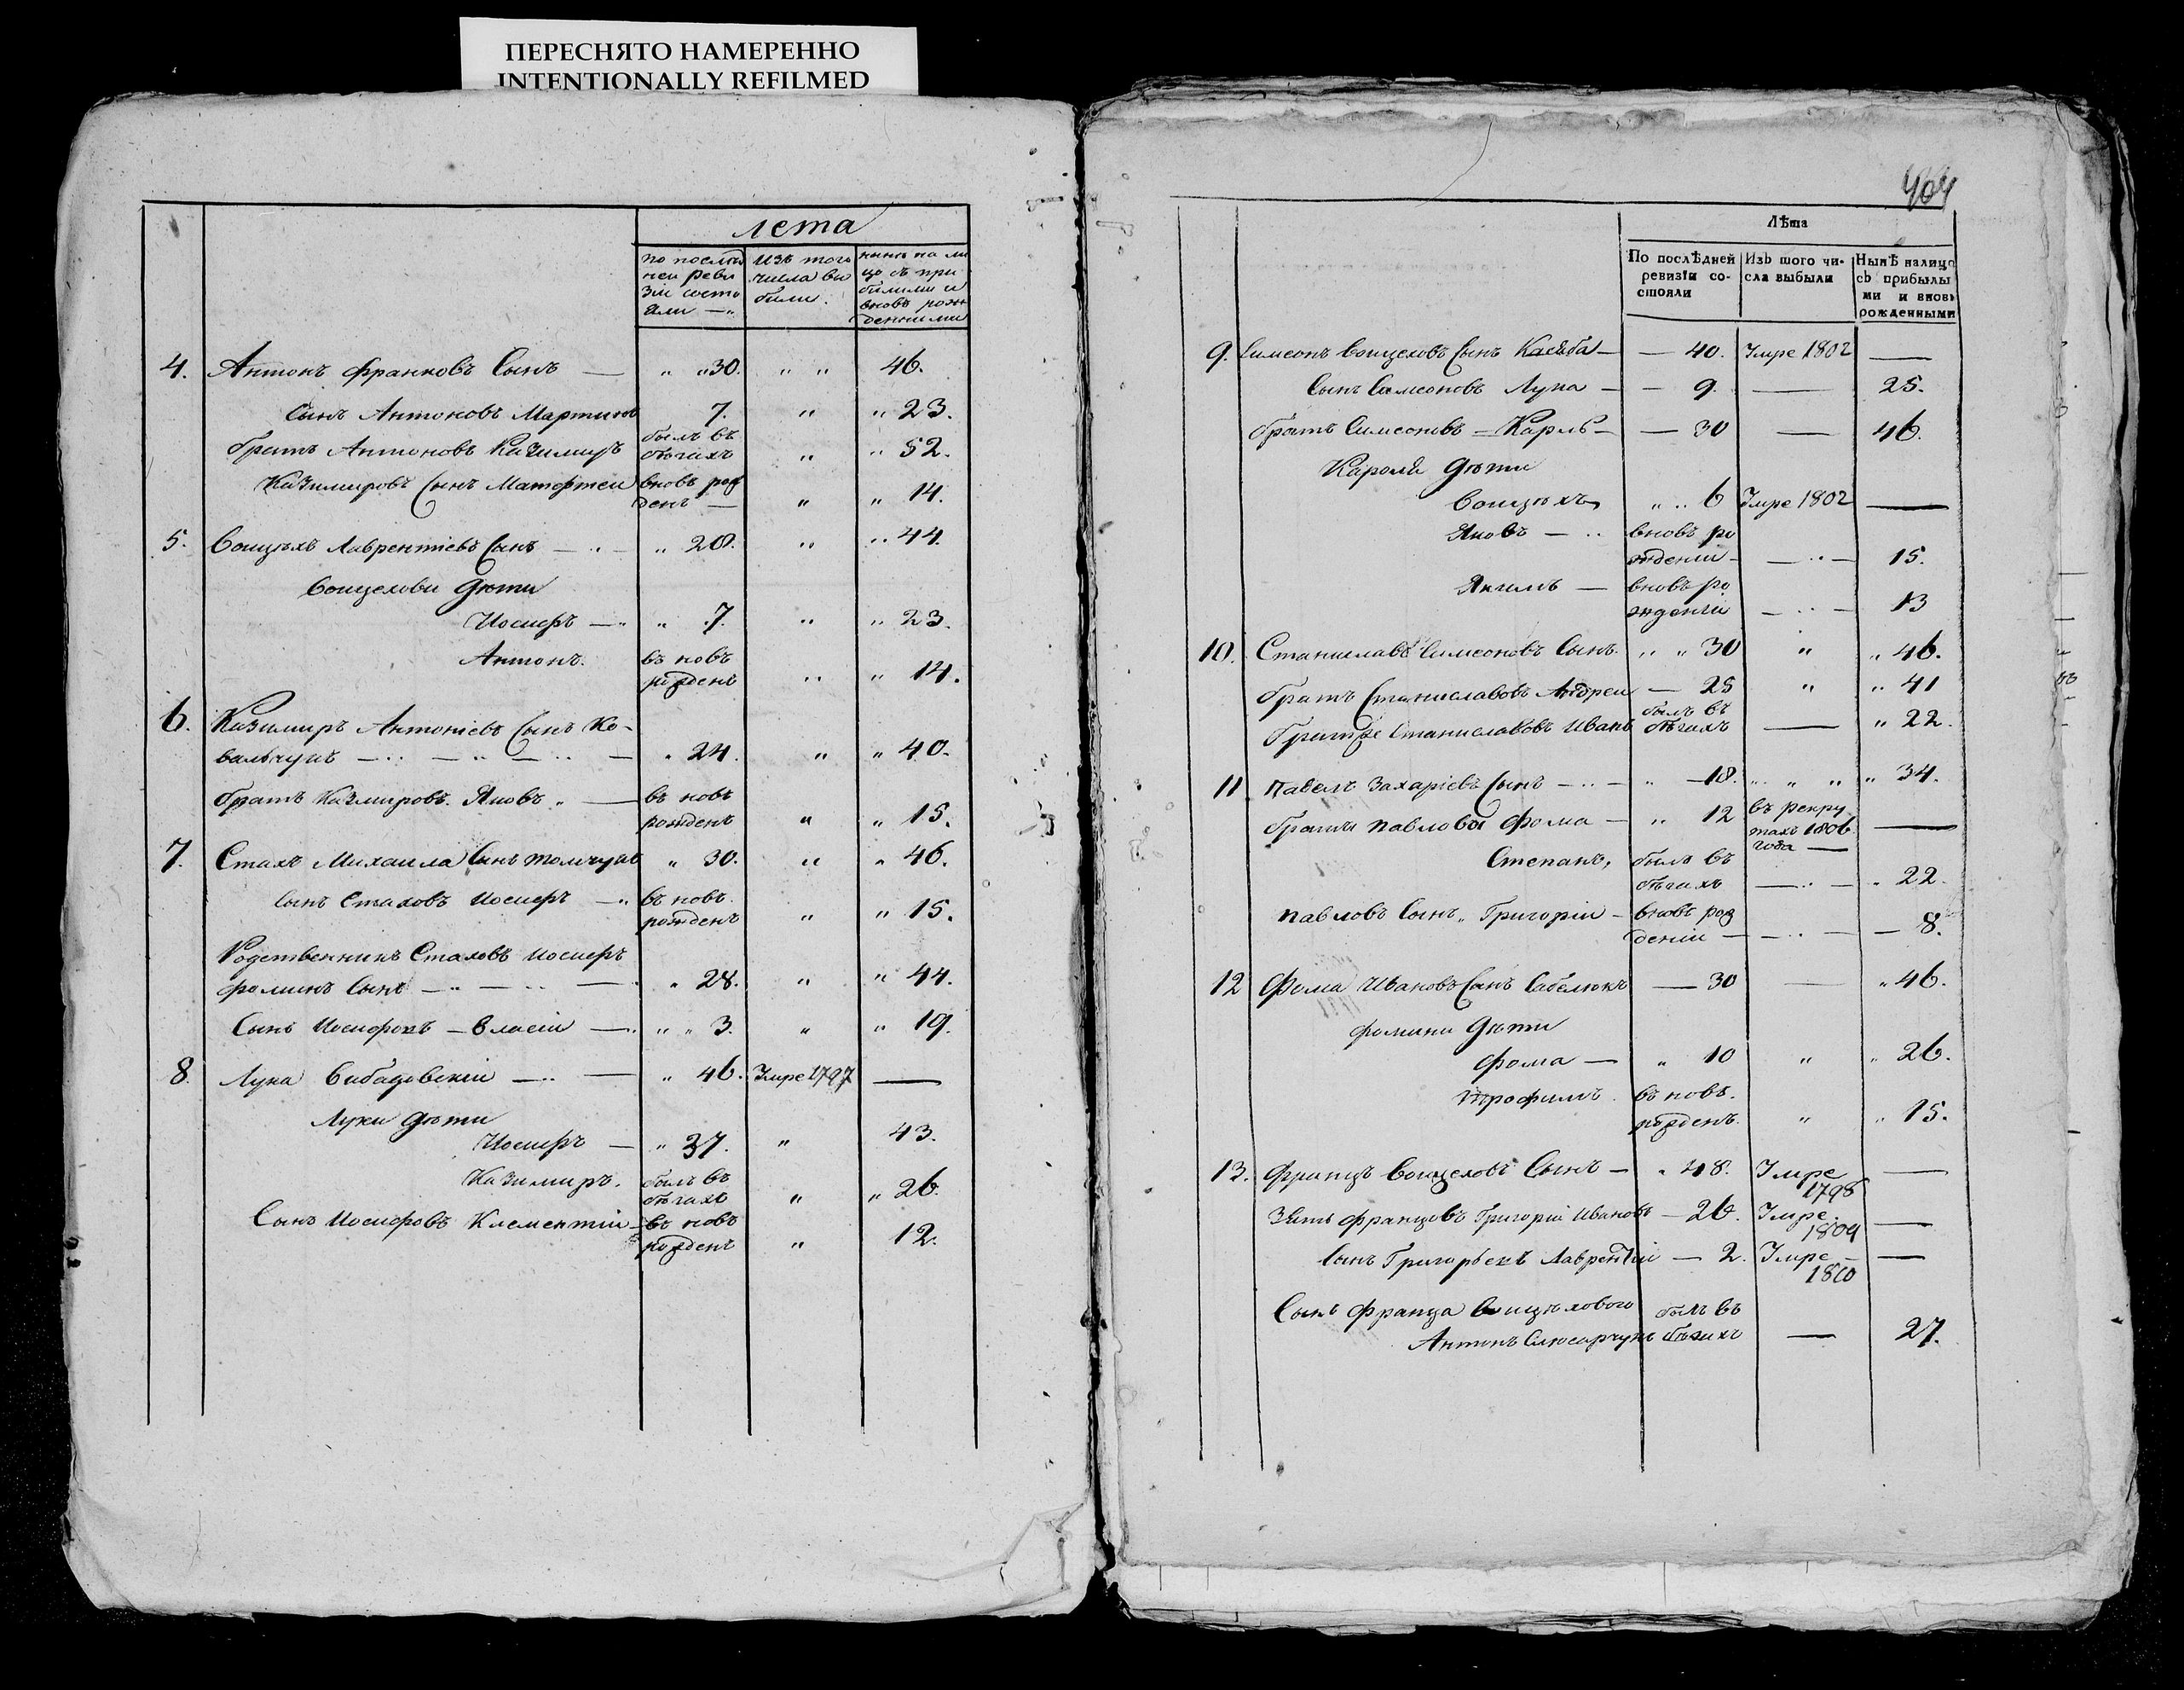 ПЕРЕСНЯТО НАМЕРЕННО
INTENTIONALLY REFILMED
лета
по послѣд
ней реви
зіи состо
яли —
Изъ того
числа вы
были.
нынѣ на ли
цо съ при
былими и
вновь рож
денними
4. Антонъ Франковъ Сынъ — " " 30. " " 46.
Сынъ Антоновъ Мартинъ 7. " " 23.
братъ Антоновъ Казимиръ былъ въ бѣгахъ " " 52.
Казимировъ Сынъ Матфтеи вновь рож денъ — " " 14.
5. Воицѣхъ Лаврентіевъ Сынъ — " — " 28. " " 44.
Воицехови дѣти
Иосифъ — " " 7. " " 23.
Антонъ. въ новъ рожденъ " " 14.
6. Казимиръ Антоніевъ Сынъ Ко-
вальчукъ — " — " — " — " 24. " " 40.
братъ Казмировъ. Яковъ " — въ новъ рожденъ " " 15.
7. Стахъ Михаила Сынъ Томчукъ " 30. " " 46.
Сынъ Стаховъ Иосифъ — " въ новъ. рожденъ " " 15.
Родственникъ Стаховъ Иосифъ
Фоминъ Сынъ — " — " — " 28. " " 44.
Сынъ Иосифовъ — Власіи — " " 3. " " 19.
8. Лука — " — " 46. Умре 1797 —
Луки дѣти
Иосифъ — " 27. " 43.
Казимиръ. былъ въ бѣгахъ " " 26.
Сынъ Иосифовъ Клементіи — въ новъ рожденъ " 12.
404
Лѣта
По послѣдней
ревизіи со-
стояли
Изъ того чи-
сла выбыли
Нынѣ налицо
съ прибылы
ми и вновь
рожденными
9. Симеонъ Воицеховъ Сынъ — — 40. Умре 1802 —
Сынъ Симеоновъ Лука — — 9. — 25.
братъ Симеоновъ — Карль — — 30 — 46.
Кароля дѣти
Воицѣхъ " " 6 Умре 1802 —
Яковъ — " вновь ро жденіи — — " — 15.
Якимъ — вновь ро жденіи — " — 13
10. Станиславъ Симеоновъ Сынъ. " " 30 " " 46.
братъ Станиславовъ Андреи — 25 " " 41
Станиславовъ Иванъ былъ въ бѣгахъ — " 22.
11 Павелъ Захаріевъ Сынъ — " — " — 18. " " " " 34.
братъ Павлови Фома — " 12 въ рекру тахъ 1806 года — —
Степанъ, былъ въ бѣгахъ — " — " 22.
Павловъ Сынъ " Григоріи — вновь рож деніи — — " — — 8.
12 Фома Ивановъ Сынъ Сабелюкъ — 30 — " 46.
Фомини дѣти
Фома — " 10 " " 26.
Трофимъ. въ новъ. рожденъ. " " 15.
13. Францъ Воицеховъ Сынъ — " 48. Умре 1798 —
Зять Францовъ Григоріи Ивановъ — 26. Умре. 1809 —
Сынъ Лаврентіи — 2. Умре — 1810 —
Сынъ Франца Воицѣхового былъ въ
Антонъ Слюсарчукъ бѣгахъ — 27.